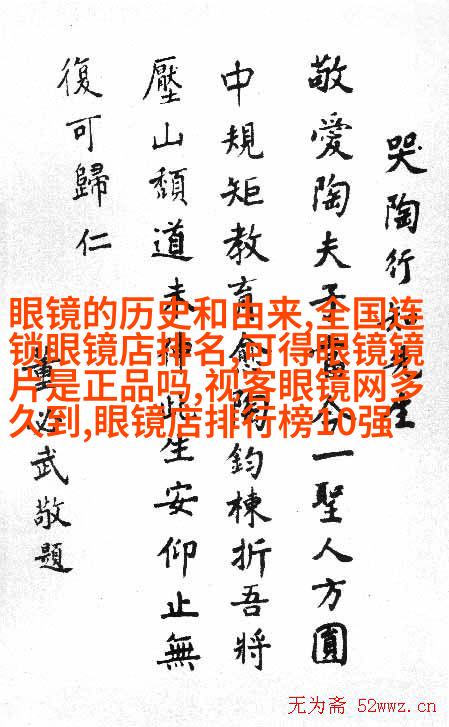 哭陶行知先生
敬愛陶夫子當今一聖人方圓
中規矩教育愈陶鈞棟折吾將
壓山頹道未此生安仰止無
復可歸仁
董必武敬題
眼镜的历史和由来,全国连
锁眼镜店排名,可得眼镜镜
片是正品吗,视客眼镜网多
久到,眼镜店排行榜10强
无为斋 52wwz.cn